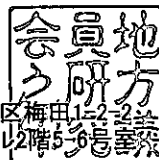 地方議
員研
会
区梅田1-2-2-
ル2階5-6号室